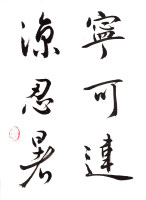 寧可違
涼忍暑